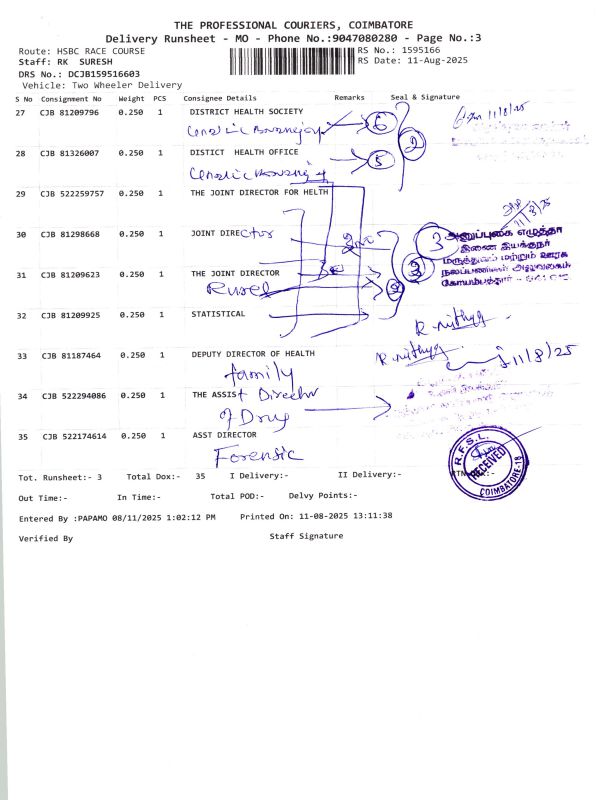 THE PROFESSIONAL COURIERS, COIMBATORE
Delivery Runsheet - MO - Phone No.:9047080280 - Page No.:3
Route: HSBC RACE COURSE
RS No.: 1595166
Staff: RK SURESH
RS Date: 11-Aug-2025
DRS No.: DCJB159516603
Vehicle: Two Wheeler Delivery
S No Consignment No Weight PCS Consignee Details Remarks Seal & Signature
27 CJB 81209796 0.250 1 DISTRICT HEALTH SOCIETY
6
2
11/8/25
28 CJB 81326007 0.250 1 DISTICT HEALTH OFFICE
5
29 CJB 522259757 0.250 1 THE JOINT DIRECTOR FOR HELTH
11/8/25
30 CJB 81298668 0.250 1 JOINT DIRECTOR
3
அனுப்புகை எழுத்தர்
இணை இயக்குநர்
மருத்துவம் மற்றும் ஊரக
நலப்பணிகள் அலுவலகம்
31 CJB 81209623 0.250 1 THE JOINT DIRECTOR
3
Rural
32 CJB 81209925 0.250 1 STATISTICAL
R. nithya
33 CJB 81187464 0.250 1 DEPUTY DIRECTOR OF HEALTH
R. nithya
11/8/25
family
34 CJB 522294086 0.250 1 THE ASSIST Director
of Drug
35 CJB 522174614 0.250 1 ASST DIRECTOR
Forensic
R.F.S.L.
RECEIVED
COIMBATORE-18
Tot. Runsheet:- 3 Total Dox:- 35 I Delivery:- II Delivery:-
Out Time:- In Time:- Total POD:- Delvy Points:-
Entered By :PAPAMO 08/11/2025 1:02:12 PM Printed On: 11-08-2025 13:11:38
Verified By Staff Signature